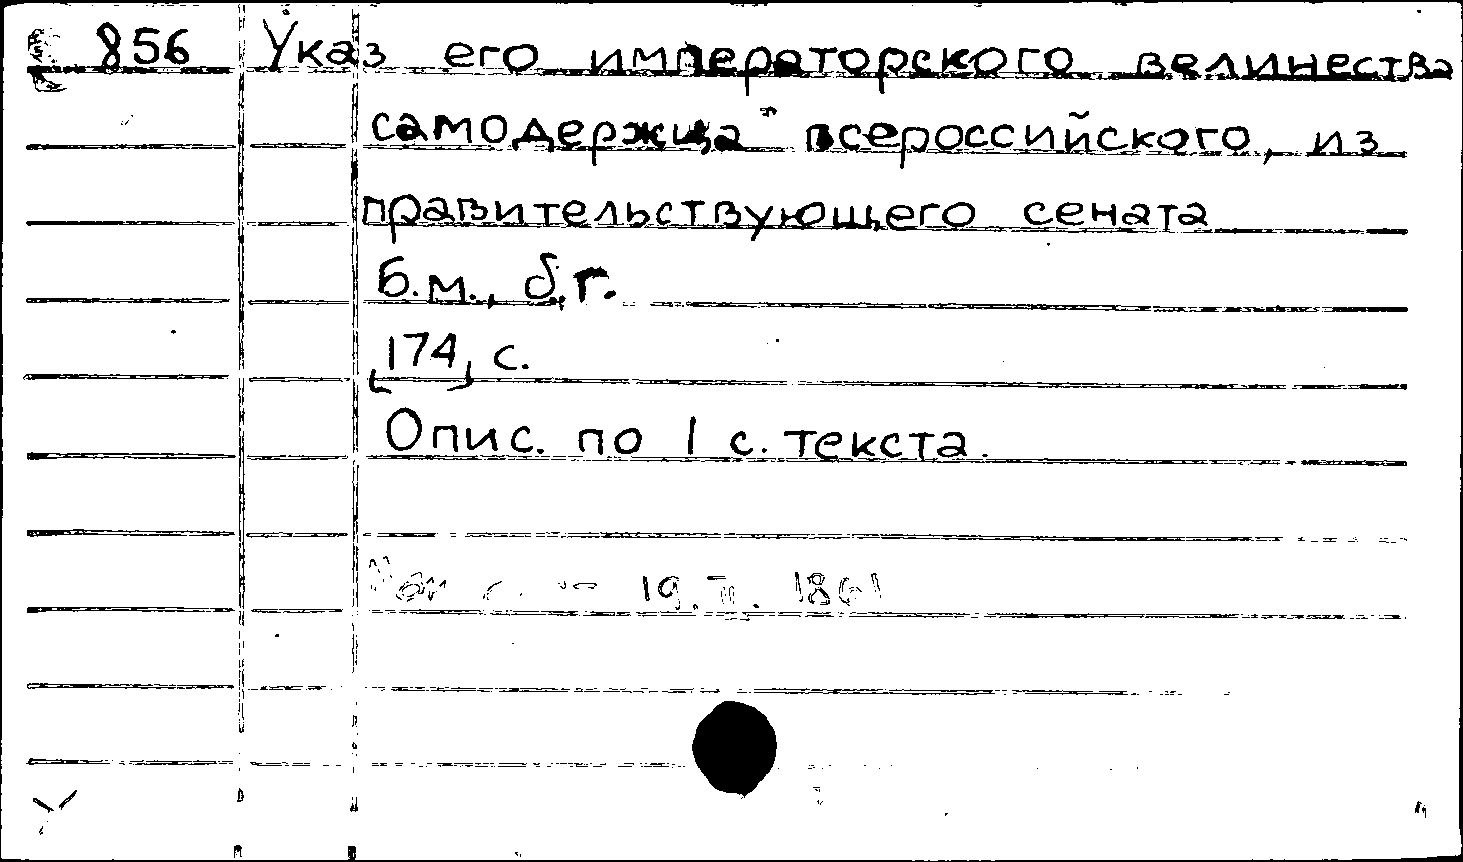 856 Указ его императорского велинества
самодержца всероссийского, из
правительствующего сената
Б.м., б.г.
[174] с.
Опис. по 1 с. текста.
19. II. 1861